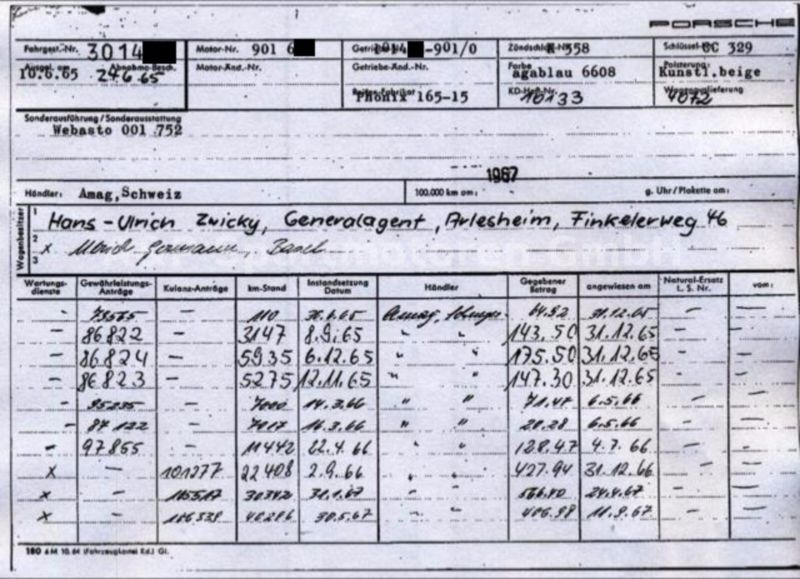 PORSCHE
Fahrgest.-Nr. 3014 Motor-Nr. 901 6 Getriebe-Nr. -901/0 Zündschloß-Nr. 558 Schlüssel-Nr. CC 329
Ausgel. am 10.6.65 Abnahme-Besch. 24.6.65 Motor-Änd.-Nr. Getriebe-Änd.-Nr. Farbe agablau 6608 Polsterung: Kunstl.beige
Reifen-Fabrikat Phönix 165-15 KD-Heft-Nr. 10133 Wagenauslieferung 4072
Sonderausführung / Sonderausstattung
Webasto 001 752
1967
Händler: Amag,Schweiz 100.000 km am: g. Uhr/Plakette am:
Wagenbesitzer
1 Hans-Ulrich Zwicky, Generalagent, Arlesheim, Finkelerweg 46
2 x Basel
3
Wartungsdienste Gewährleistungs-Anträge Kulanz-Anträge km-Stand Instandsetzung Datum Händler Gegebener Betrag angewiesen am Natural-Ersatz L. S. Nr. vom:
- - 110 Amag, 64.92 31.12.65 - -
- 86822 - 3147 8.9.65 " " 143.50 31.12.65 - -
- 86824 - 5935 6.12.65 " " 175.50 31.12.65 - -
- 86823 - 5275 12.11.65 " " 147.30 31.12.65 - -
- 95235 - 7000 14.3.66 " " 71.47 6.5.66 - -
- 87122 - 7017 16.3.66 " " 20.28 6.5.66 - -
- 97865 - 11442 22.4.66 " " 128.47 4.7.66 - -
x - 101277 22408 2.9.66 " " 427.94 31.12.66 - -
x - 30342 31.1.67 " " 24.4.67 - -
x - 106539 40286 30.5.67 " " 406.98 11.9.67 - -
180 6 M 10.64 (Fahrzeugkartei Kd.) Gl.